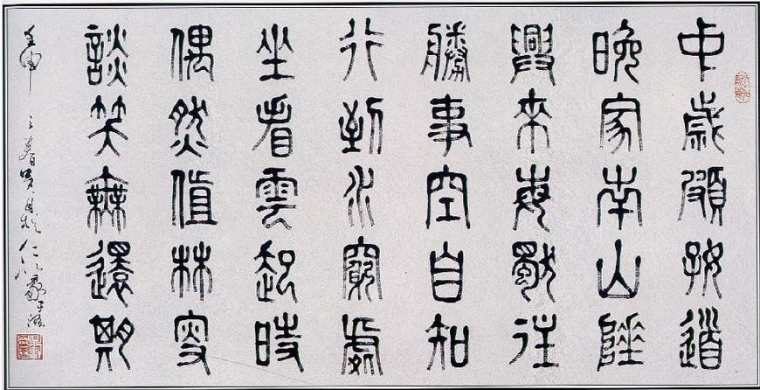 中歲頗好道
晚家南山陲
興來每獨往
勝事空自知
行到水窮處
坐看雲起時
偶然值林叟
談笑無還期
壬申之春